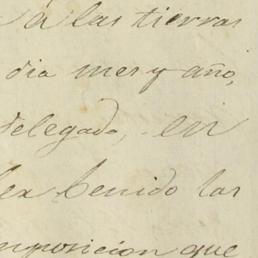 á las tierras
dia mes y año,
delegado, en
benido las
mposicion que